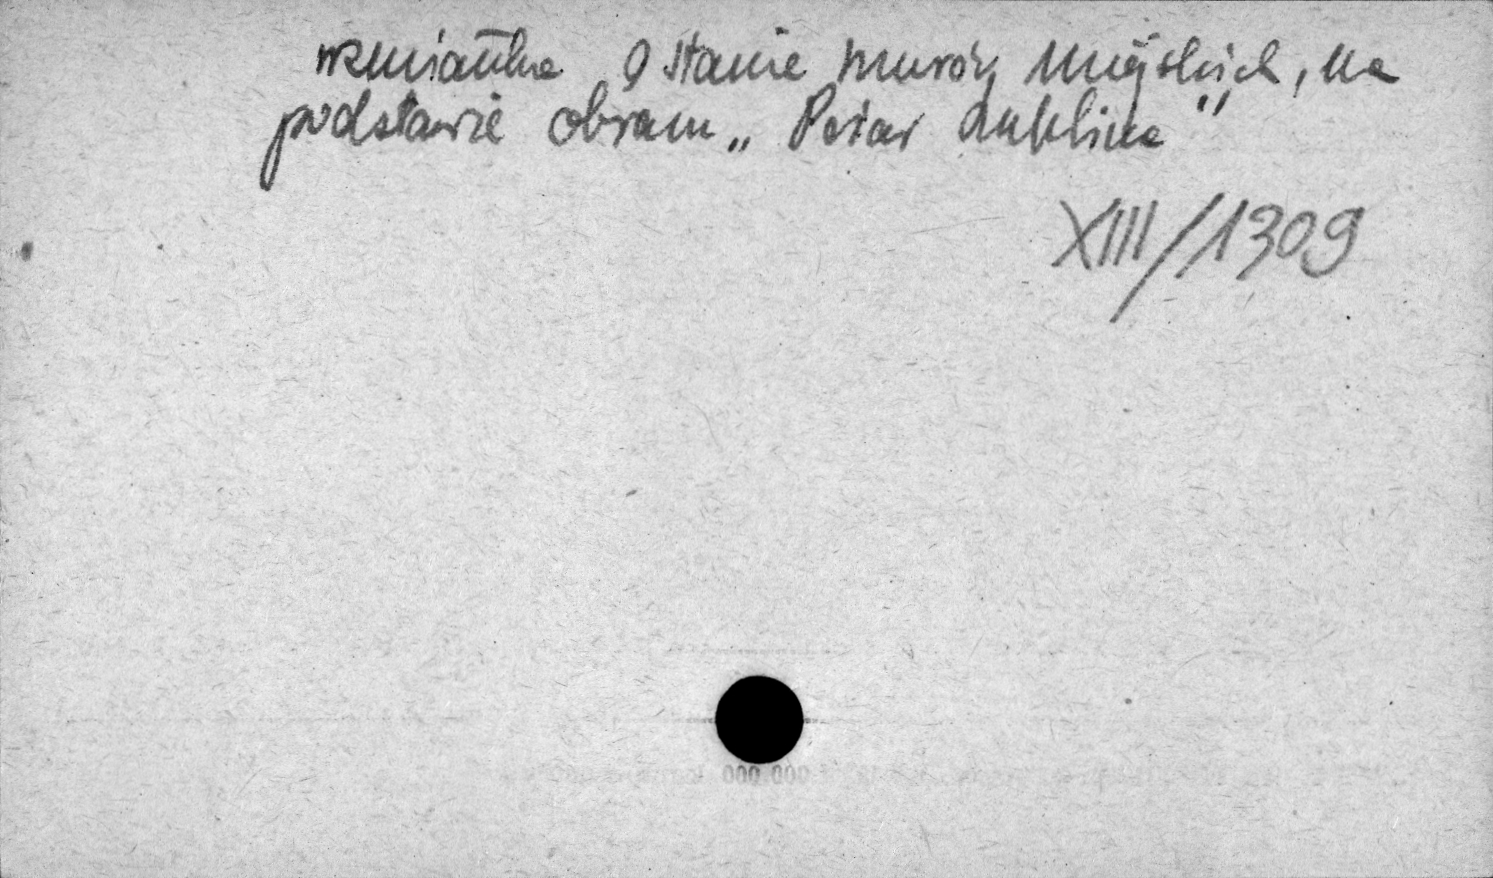 wzmianka o stanie murów miejskich, na
podstawie obrazu „Pożar Lublina"
XIII/1309
000.000